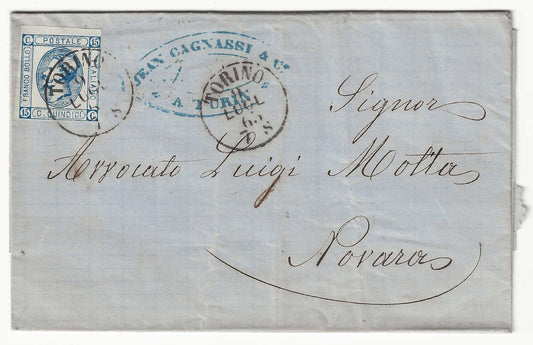 C. POSTALE 15
FRANCO BOLLO
ITALIANO
15 C. QUINDICI C.
TORINO
LUGL
7 S
JEAN CAGNASSI & Cie
A TURIN
TORINO
LUGL
63
7 S
Signor
Avvocato Luigi Motta
Novara